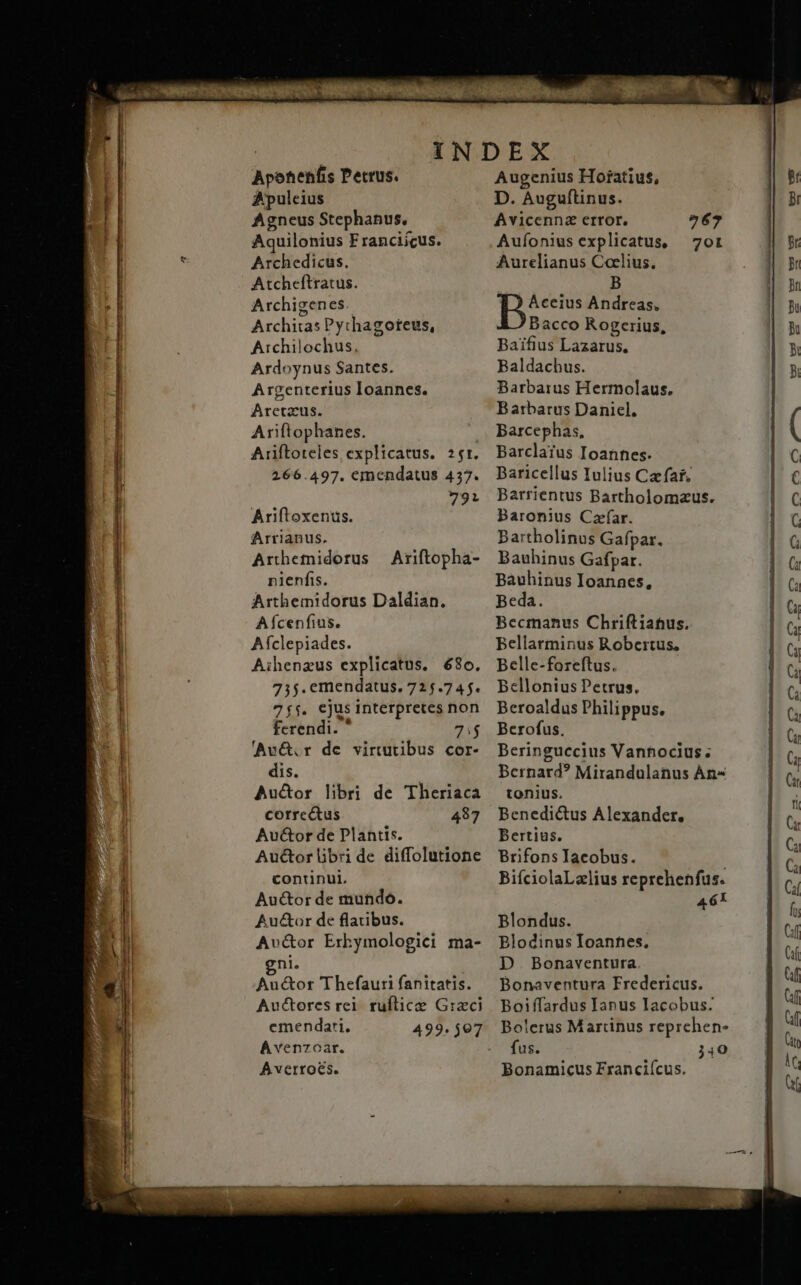 INDEX
Aponenſis Petrus.
Apuleius
Agneus Stephanus.
Aquilonius Franciſcus.
Archedicus.
Atcheſtratus.
Archigenes.
Architas Pythagoreus,
Archilochus.
Ardoynus Santes.
Argenterius Ioannes.
Aretæus.
Ariſtophanes.
Ariſtoteles explicatus. 251.
266.497. emendatus 437.
792
Ariſtoxenus.
Arrianus.
Arthemidorus Ariſtopha-
nienſis.
Arthemidorus Daldian.
Aſcenſius.
Aſclepiades.
Athenæus explicatus. 680.
735. emendatus. 725.745.
755. ejus interpretes non
ferendi. 715
Auctor de virtutibus cor-
dis.
Auctor libri de Theriaca
correctus 487
Auctor de Plantis.
Auctor libri de diſſolutione
continui.
Auctor de mundo.
Auctor de flatibus.
Auctor Erhymologici ma-
gni.
Auctor Theſauri ſanitatis.
Auctores rei ruſticæ Græci
emendati. 499.507
Avenzoar.
Averroës.
Augenius Horatius,
D. Auguſtinus.
Avicennæ error. 767
Auſonius explicatus, 701
Aurelianus Cœlius.
B
BAccius Andreas.
Bacco Rogerius,
Baïfius Lazarus.
Baldachus.
Barbarus Hermolaus.
Barbarus Daniel.
Barcephas,
Barclaïus Ioannes.
Baricellus Iulius Cæſar.
Barrientus Bartholomæus.
Baronius Cæſar.
Bartholinus Gaſpar.
Bauhinus Gaſpar.
Bauhinus Ioannes,
Beda.
Becmanus Chriſtianus.
Bellarminus Robertus.
Belle-foreſtus.
Bellonius Petrus.
Beroaldus Philippus.
Beroſus.
Beringuccius Vannocius.
Bernard' Mirandulanus An-
tonius.
Benedictus Alexander.
Bertius.
Briſons Iacobus.
BiſciolaLælius reprehenſus.
461
Blondus.
Blodinus Ioannes,
D. Bonaventura.
Bonaventura Fredericus.
Boiſſardus Ianus Iacobus.
Bolerus Martinus reprehen-
ſus. 340
Bonamicus Franciſcus.